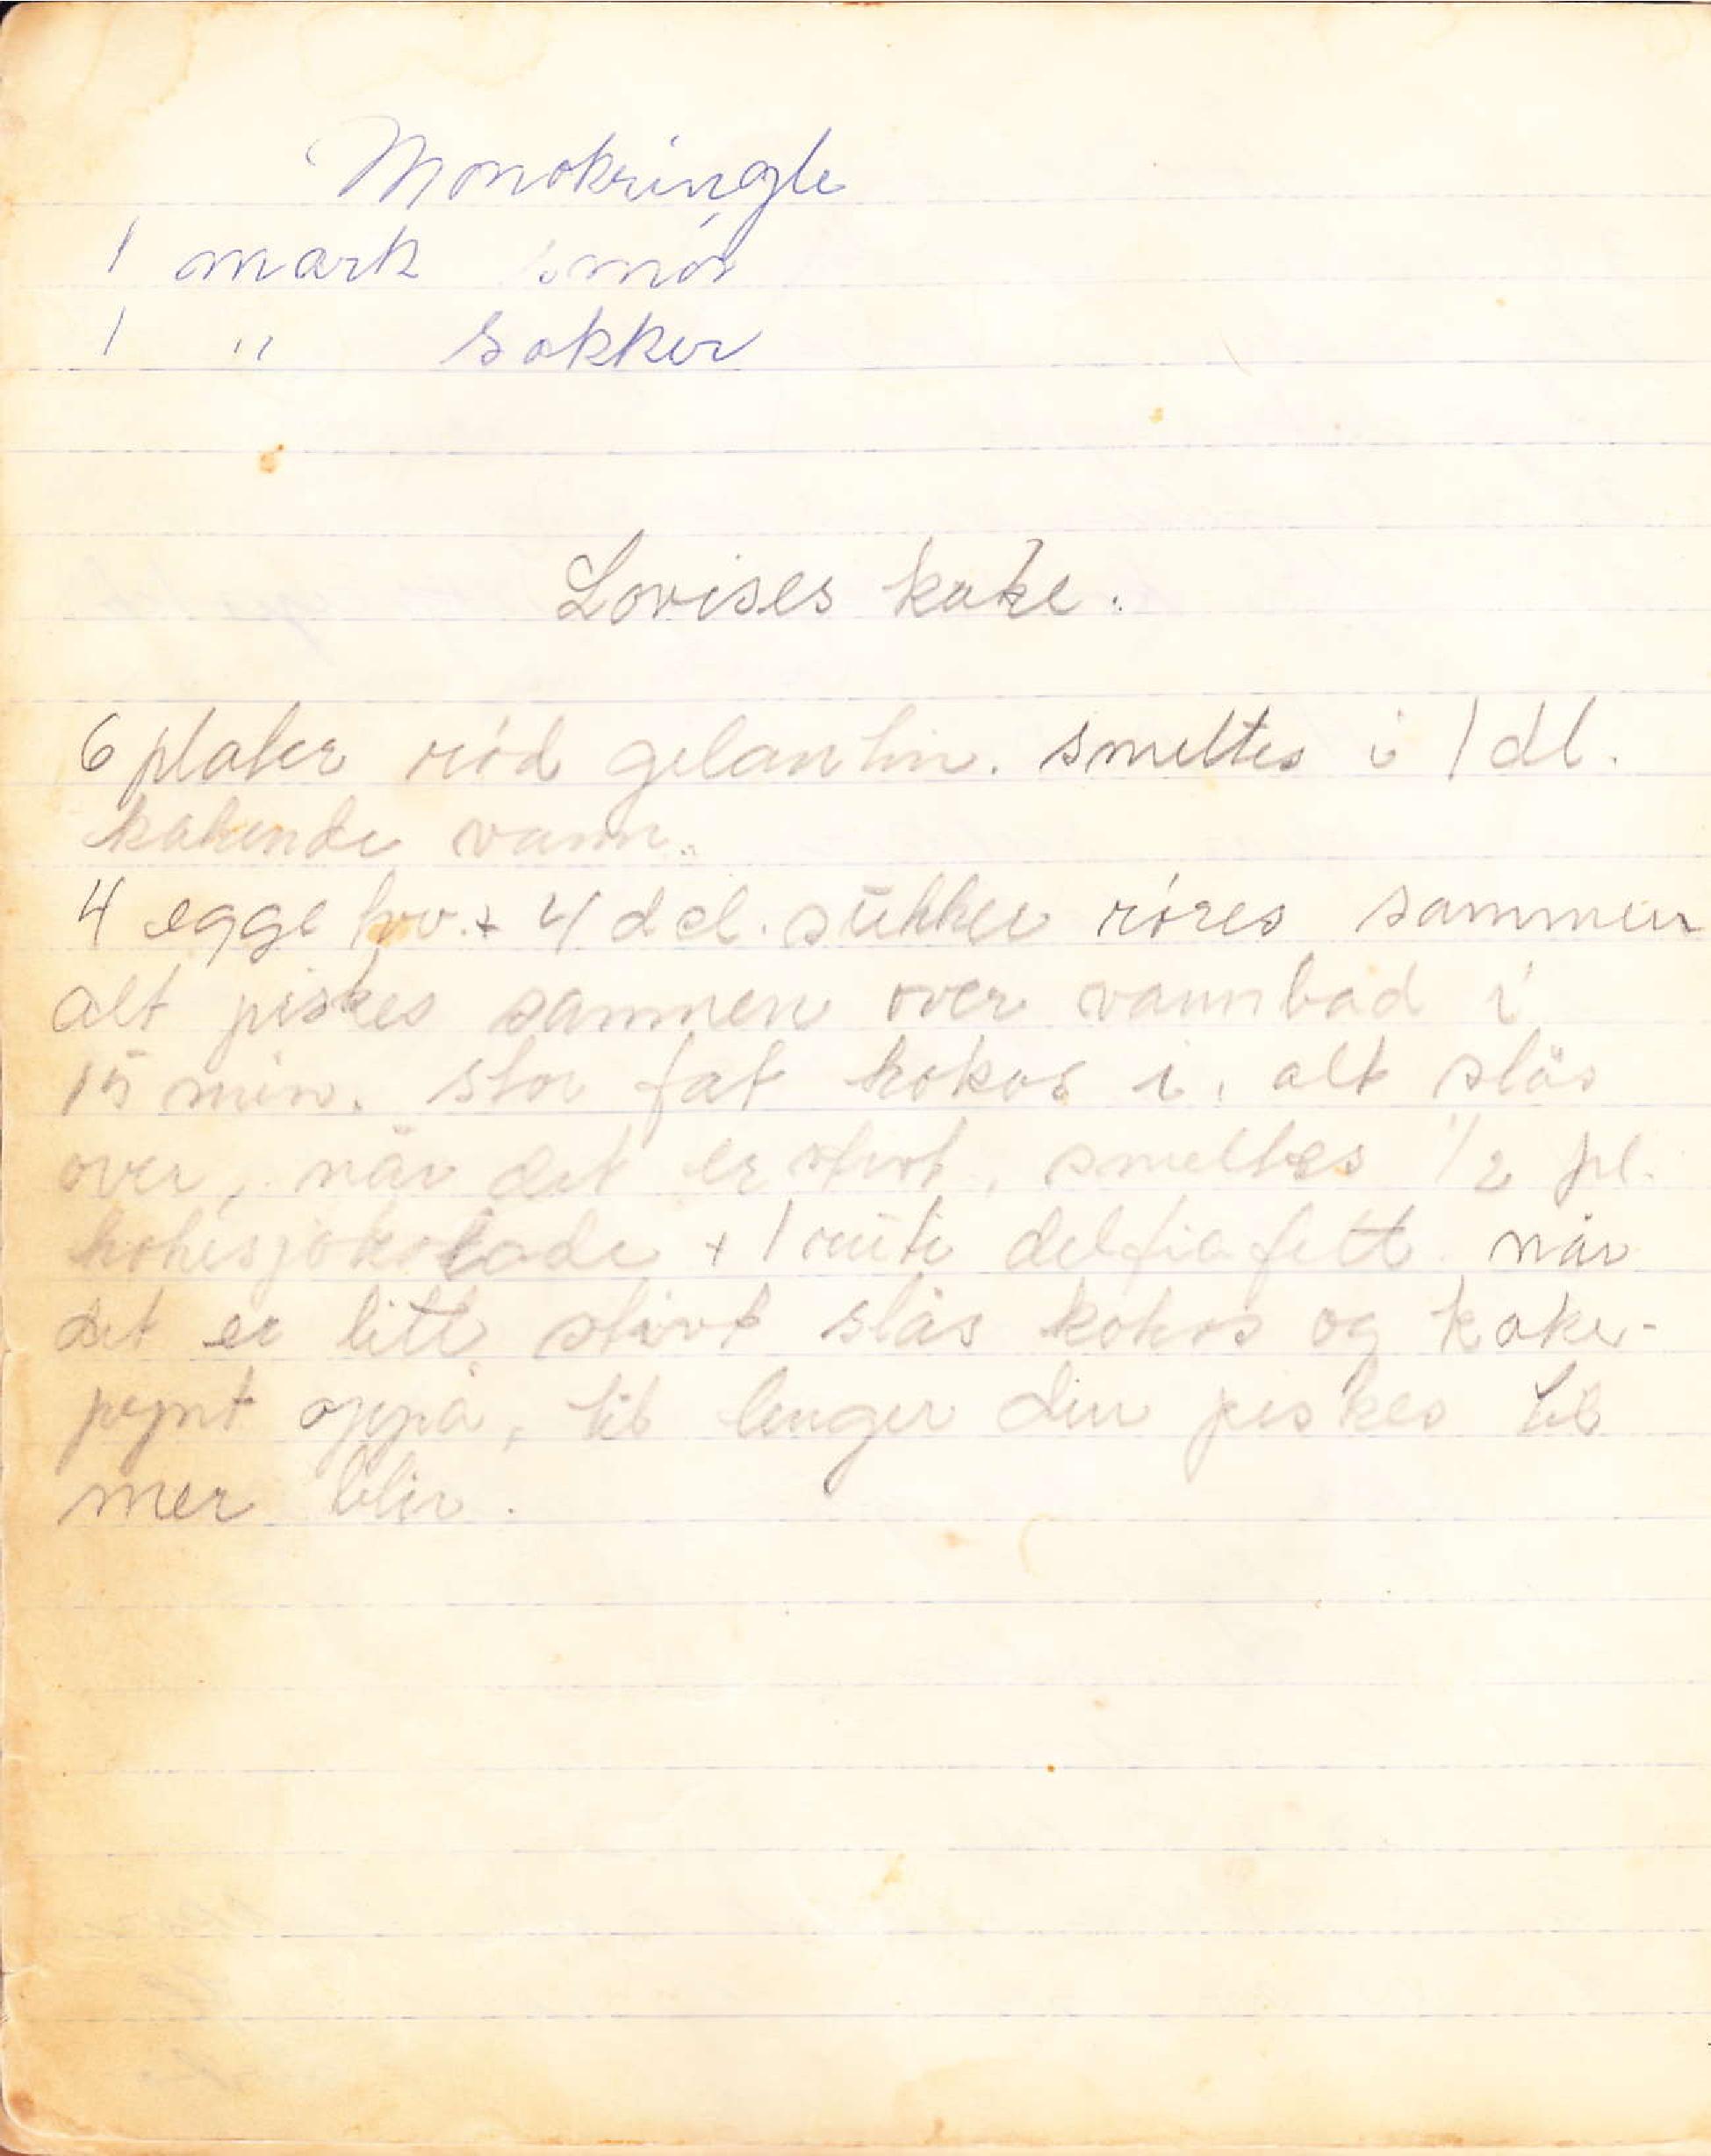 Monokringle
1 mark smør
1 " sokker
Lovises kake.
6 plater rød gelantin. smeltes i 1 dl.
kokende vann.
4 egge hv. + 4 del. sukker røres sammen
alt piskes sammen over vannbad i
15 min. stor fat kokos i, alt slås
over, når det er stivt, smeltes 1/2 pl.
kokesjokolade + 1 rute delfiafett når
det er litt stivt slås kokos og kake-
pynt oppå, til lenger den piskes til
mer blir.